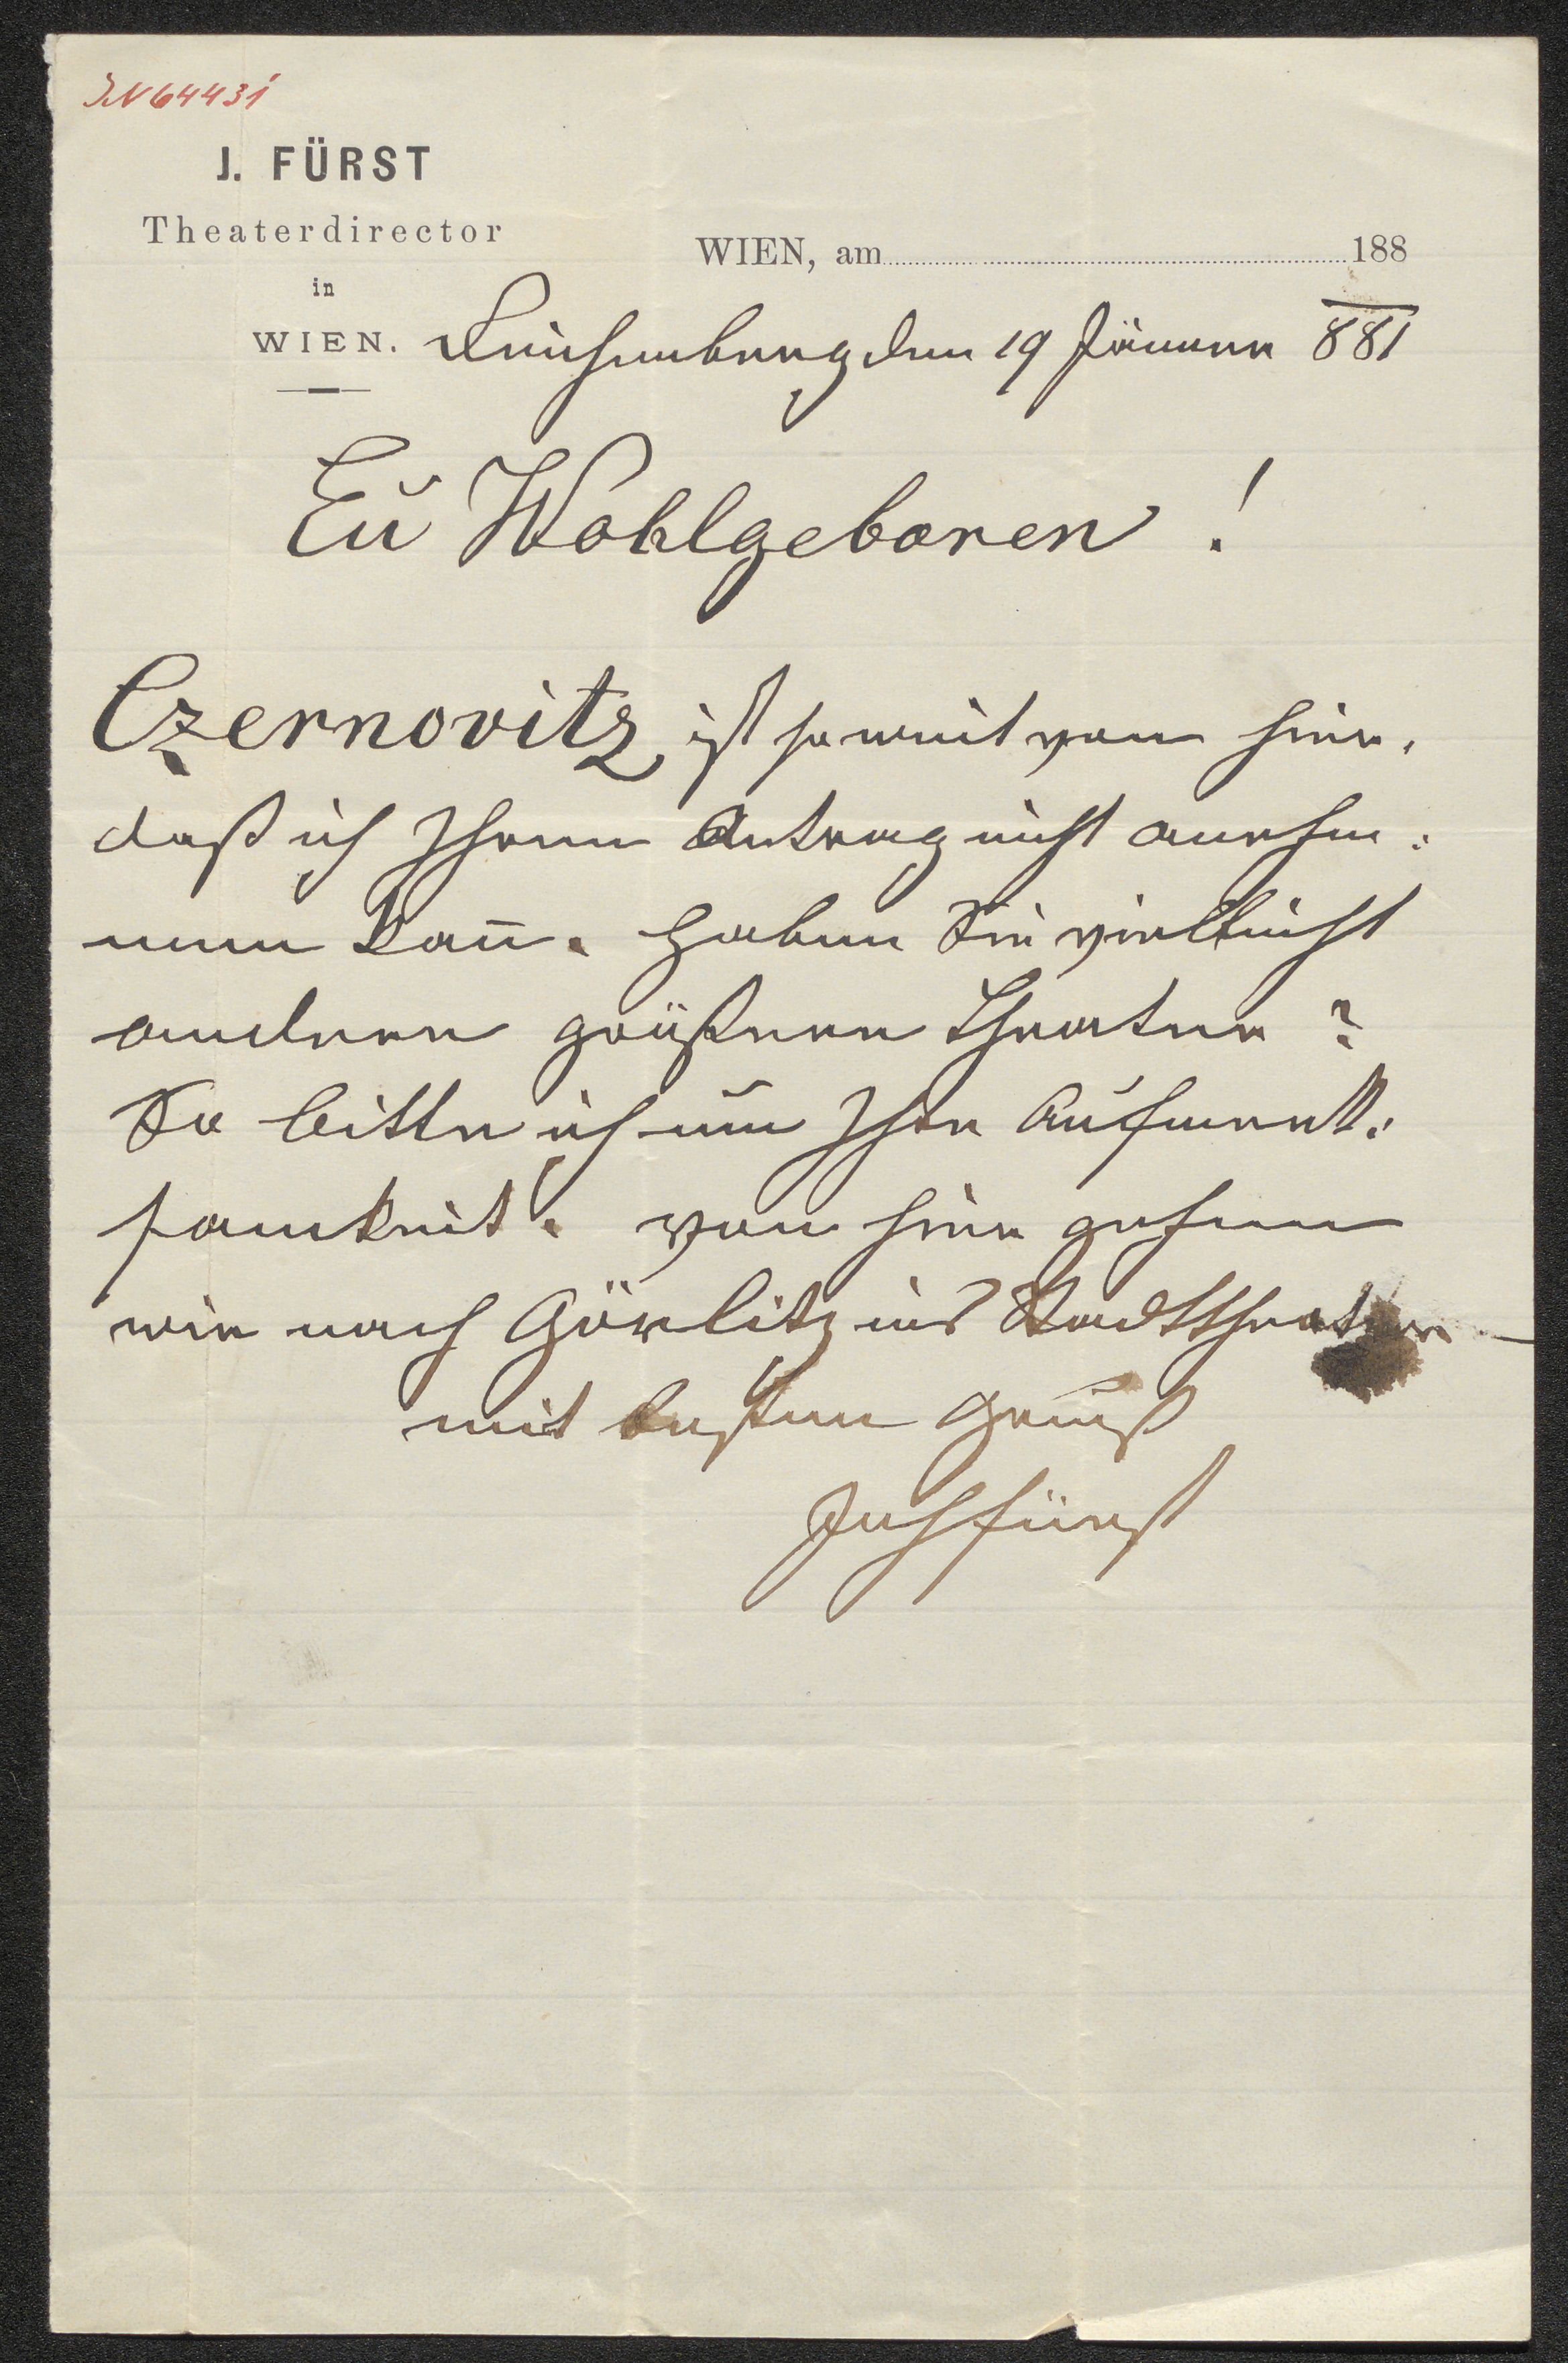 IN 64431
J. FÜRST
Theaterdirector
in
WIEN.
WIEN, am 188
Reichenberg den 19 Jänner 881
Eu Wohlgeboren !
Czernovitz ist so weit von hier,
daß ich Ihren Antrag nicht anneh:
men kan̄. Haben Sie vielleicht
andere größere Theater ?
So bitte ich um Ihre Aufmerk:
samkeit. von hier gehen
wir nach Görlitz ins Stadttheater.
mit besten Gruß
Joh Fürst